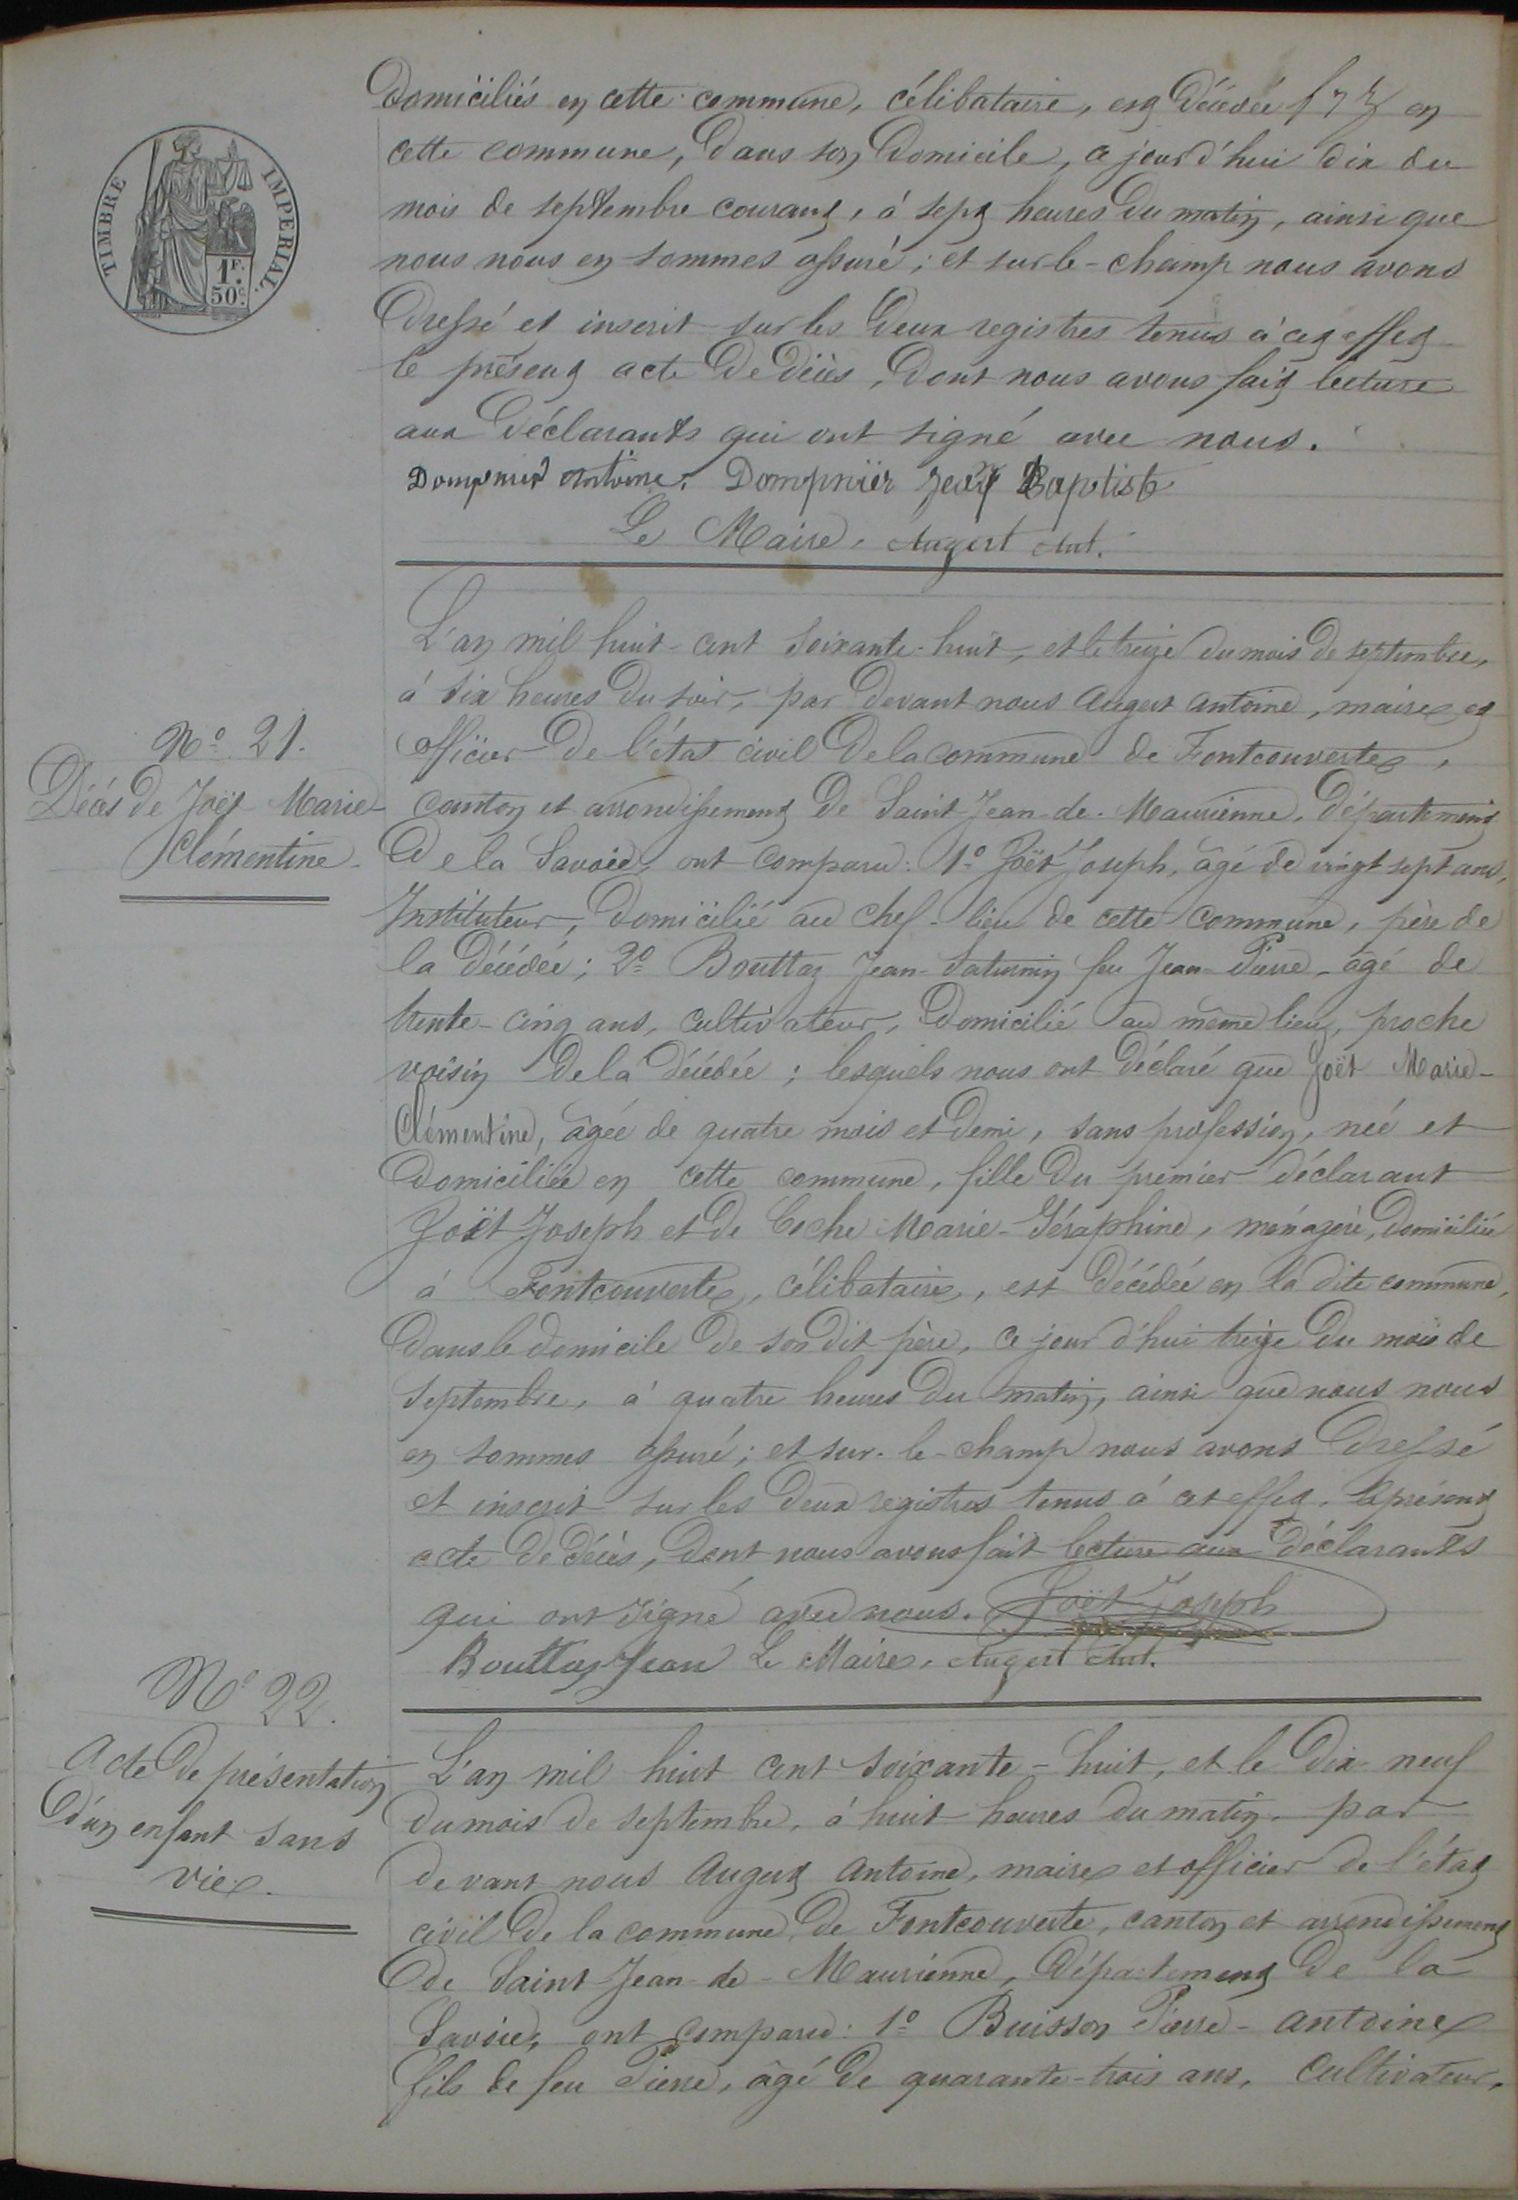 domiciliés en cette commune, célibataire, est décédée en
cette commune, dans son domicile, ce jourd'hui dix du
mois de septembre courant, à sept heures du matin, ainsi que
nous nous en sommes assuré ; et sur-le-champ nous avons
dressé et inscrit sur les deux registres tenus à cet effet
le présent acte de décès, dont nous avons fait lecture
aux déclarants qui ont signé avec nous.
Dompnier Antoine. Dompnier Jean Baptiste
Le Maire, Augert Ant.
TIMBRE IMPERIAL.
1F.
50C.
No. 21.
Décès de Joët Marie
Clémentine
L'an mil huit-cent soixante-huit, et le treize du mois de septembre,
à six heures du soir, par devant nous Augert Antoine, maire et
officier de l'état civil de la commune de Fontcouverte,
canton et arrondissement de Saint-Jean-de-Maurienne, département
de la Savoie, ont comparu : 1o Joët Joseph, âgé de vingt sept ans,
Instituteur, domicilié au chef-lieu de cette commune, père de
la décédée ; 2o Bouttaz Jean-Saturnin feu Jean-Pierre, âgé de
trente-cinq ans, cultivateur, domicilié au même lieu, proche
voisin de la décédée ; lesquels nous ont déclaré que Joët Marie-
Clémentine, âgée de quatre mois et demi, sans profession, née et
domiciliée en cette commune, fille du premier déclarant
Joët Joseph et de Coche Marie-Séraphine, ménagère, domiciliée
à Fontcouverte, célibataire, est décédée en la dite commune,
dans le domicile de son dit père, ce jourd'hui treize du mois de
septembre, à quatre heures du matin, ainsi que nous nous
en sommes assuré ; et sur-le-champ nous avons dressé
et inscrit sur les deux registres tenus à cet effet, le présent
acte de décès, dont nous avons fait lecture aux déclarants
qui ont signé avec nous. Joët Joseph
Bouttaz Jean Le Maire, Augert Ant.
No 22.
Acte de présentation
d'un enfant sans
vie.
L'an mil huit cent soixante-huit, et le dix-neuf
du mois de septembre, à huit heures du matin, par
devant nous Augert Antoine, maire et officier de l'état
civil de la commune de Fontcouverte, canton et arrondissement
de Saint-Jean-de-Maurienne, département de la
Savoie, ont comparu : 1o Buisson Pierre-Antoine
fils de feu Pierre, âgé de quarante-trois ans, cultivateur,